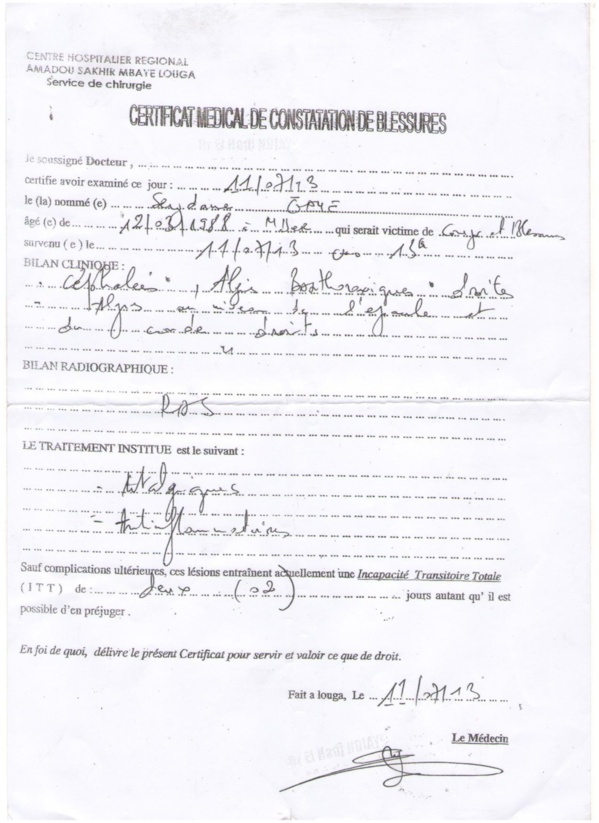 CENTRE HOSPITALIER REGIONAL
AMADOU SAKHIR MBAYE LOUGA
Service de chirurgie
CERTIFICAT MEDICAL DE CONSTATATION DE BLESSURES
Je soussigné Docteur ,
certifie avoir examiné ce jour : 11/07/13
le (la) nommé (e)
âgé (e) de 12/03/1988 à qui serait victime de Coups et Blessures
survenu (e) le 11/07/13
BILAN CLINIQUE :
- Céphalées, Algies droites
- Algies au niveau de l'épaule et
du coude droits
BILAN RADIOGRAPHIQUE :
RAS
LE TRAITEMENT INSTITUE est le suivant :
- Antalgiques
- Antiinflammatoires
Sauf complications ultérieures, ces lésions entraînent actuellement une Incapacité Transitoire Totale
( I T T ) de : deux (02) jours autant qu' il est
possible d'en préjuger .
En foi de quoi, délivre le présent Certificat pour servir et valoir ce que de droit.
Fait a louga, Le 11/07/13
Le Médecin